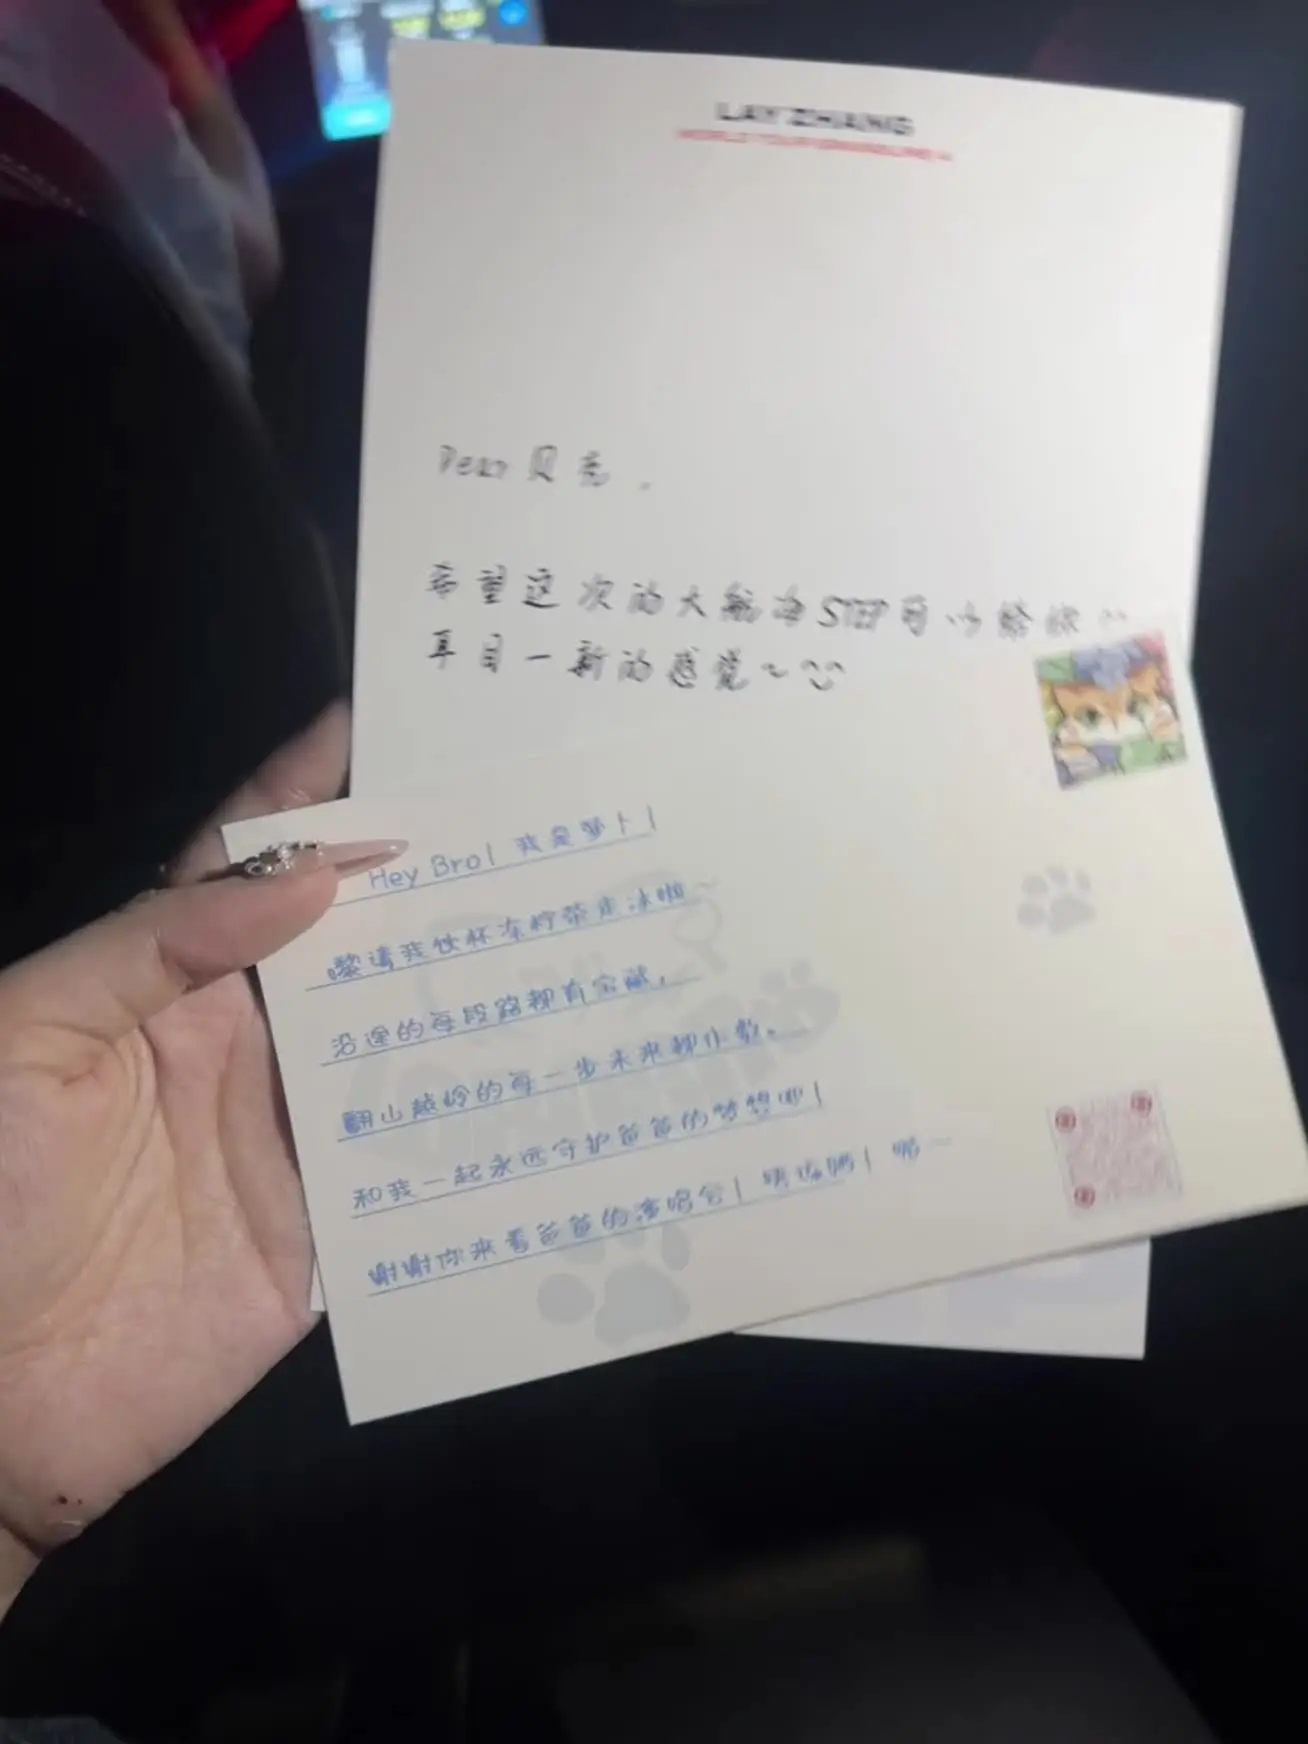 LAY ZHANG
WORLD TOUR GRANDLINE 4
Dear 贝壳，
希望这次的大航海STEP可以给你
耳目一新的感觉~
Hey Bro! 我是萝卜!
嚟请我饮杯冻柠茶走冰啦~
沿途的每段路都有宝藏，
翻山越岭的每一步未来都作数。
和我一起永远守护爸爸的梦想吧!
谢谢你来看爸爸的演唱会!